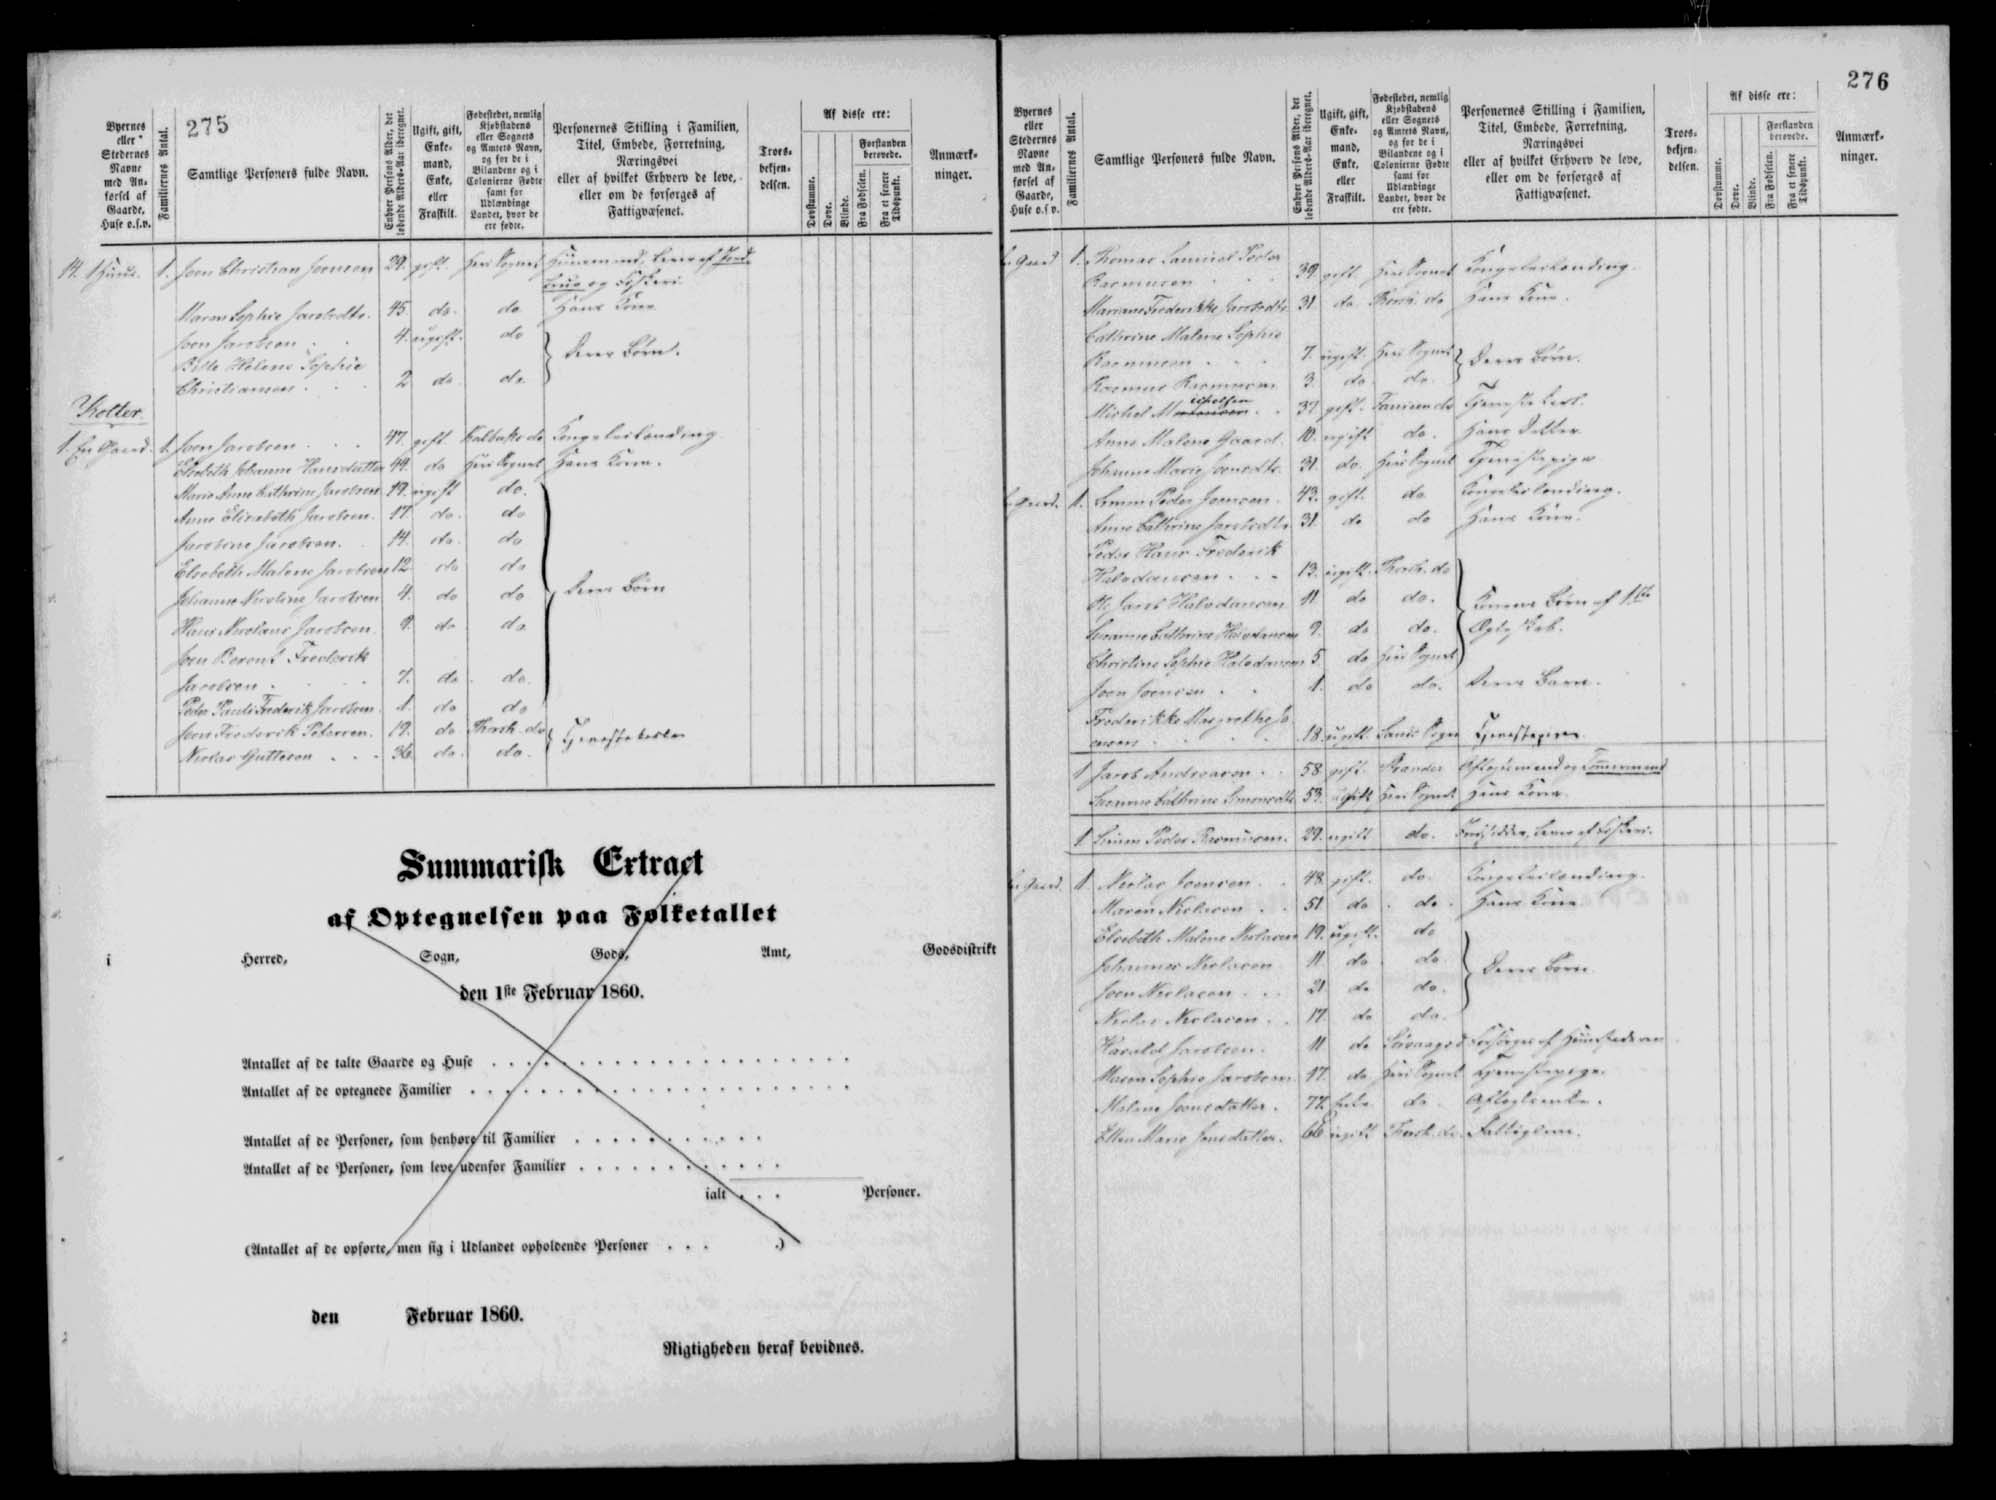 275
Byernes eller Stedernes Navne med Anførsel af Gaarde, Huse o.s.v.
Familiernes Antal.
Samtlige Personers fulde Navn.
Enhver Persons Alder, det løbende Alders-Aar iberegnet.
Ugift, gift, Enkemand, Enke, eller Fraskilt.
Fødestedet, nemlig Kjøbstadens eller Sognets og Amtets Navn, og for de i Bilandene og i Colonierne Fødte samt for Udlændinge Landet, hvor de ere fødte.
Personernes Stilling i Familien, Titel, Embede, Forretning, Næringsvei eller af hvilket Erhverv de leve, eller om de forsørges af Fattigvæsenet.
Troesbekjendelsen.
Af disse ere:
Døvstumme.
Døve.
Blinde.
Forstanden berøvede.
Fra Fødselen.
Fra et senere Tidspunkt.
Anmærkninger.
14. 1 Huus. 1. Joen Christian Joensen 29. gift. Heri Sognet Huusmand, lever af Jord-
brug og Fiskeri
Maren Sophie Jacobsdtr. 45. do. do Hans Kone
Joen Jacobsen 4. ugift. do Deres Børn.
Helene Sophie
Christiansen 2 do. do.
Kolter.
1. En Gaard. 1. Joen Jacobsen 47. gift Kalbaks do Kongsleilænding
Elsebeth Johanne Hansdatter 49. do Heri Sognet Hans Kone.
Marie Anne Cathrine Jacobsen 19. ugift do.
Anne Elisabeth Jacobsen. 17 do. do
Jacobine Jacobsen. 14. do. do
Elsebeth Malene Jacobsen 12 do do
Johanne Nicoline Jacobsen 4. do do Deres Børn
Hans Nicolaus Jacobsen 9. do do.
Joen Berent Frederik
Jacobsen 7. do do.
Peder Pauli Frederik Jacobsen. 1. do do
Joen Frederik Petersen. 19. do. Thorsh. do Tjenestekarle
Niclas Guttesen 36 do. do.
Summarisk Extract
af Optegnelsen paa Folketallet
i Herred, Sogn, Gods, Amt, Godsdistrikt
den 1ste Februar 1860.
Antallet af de talte Gaarde og Huse
Antallet af de optegnede Familier
Antallet af de Personer, som henhøre til Familier
Antallet af de Personer, som leve udenfor Familier
ialt . . . Personer.
(Antallet af de opførte, men sig i Udlandet opholdende Personer . . . .)
den Februar 1860.
Rigtigheden heraf bevidnes.
276
Byernes eller Stedernes Navne med Anførsel af Gaarde, Huse o.s.v.
Familiernes Antal.
Samtlige Personers fulde Navn.
Enhver Persons Alder, det løbende Alders-Aar iberegnet.
Ugift, gift, Enkemand, Enke, eller Fraskilt.
Fødestedet, nemlig Kjøbstadens eller Sognets og Amtets Navn, og for de i Bilandene og i Colonierne Fødte samt for Udlændinge Landet, hvor de ere fødte.
Personernes Stilling i Familien, Titel, Embede, Forretning, Næringsvei eller af hvilket Erhverv de leve, eller om de forsørges af Fattigvæsenet.
Troesbekjendelsen.
Af disse ere:
Døvstumme.
Døve.
Blinde.
Forstanden berøvede.
Fra Fødselen.
Fra et senere Tidspunkt.
Anmærkninger.
En Gaard 1. Thomas Samuel Peder
Rasmussen 39. gift. Heri Sognet Kongsleilænding.
Mariane Frederikke Jacobsdtr 31 do. Thorsh. do Hans Kone.
Cathrine Malene Sophie
Rasmussen 7. ugift. Heri Sognet Deres Børn.
Rasmus Rasmussen 3. do. do.
Michel Michelsen 37. gift. Famien do Tjenestekarl.
Anne Malene Gaard. 10. ugift do. Hans Datter
Johanne Marie Joensdtr. 31. do. Heri Sognet Tjenestepige
En Gaard. 1. Simon Peder Joensen. 43. gift. do Kongsleilænding.
Anne Cathrine Jacobsdtr. 31. do do Hans Kone.
Peder Hans Frederik
Halvdansen 13. ugift. Thorsh. do
Ole Jacob Halvdansen 11 do do. Konens Børn af 1ste
Susanne Cathrine Halvdansen 9. do do. Ægteskab.
Christine Sophie Halvdansen 5 do Heri Sognet
Joen Joensen 1. do do. Deres Barn.
Frederikke Magrethe Jo-
ensen 18. ugift. Sands Sogn Tjenestepige.
1 Jacob Andreasen 58 gift. Aftægtsmand og Tømmermand
Susanne Cathrine Simonsdtr. 53. Heri Sognet Hans Kone.
1. Simon Peder Rasmussen. 29. ugift do. Inderst, lever af Fiskeri.
En Gaard. 1. Niclas Joensen 48 gift. do. Kongsleilænding.
Maren Niclasen 51 do. do. Hans Kone
Elsebeth Malene Niclasen 19. ugift. do
Johannes Niclasen 11 do. do. Deres Børn
Joen Niclasen 21. do do.
Niclas Niclasen 17. do do.
Harald Jacobsen. 11 do Sørvaag do Forsørges af Huusfaderen
Maren Sophie Jacobsen 17. do Heri Sognet Tjenestepige.
Malene Joensdatter. 77. Enke do Aftægtsenke.
Ellen Marie Jensdatter. 66 ugift Thorsh. do. Fattiglem.